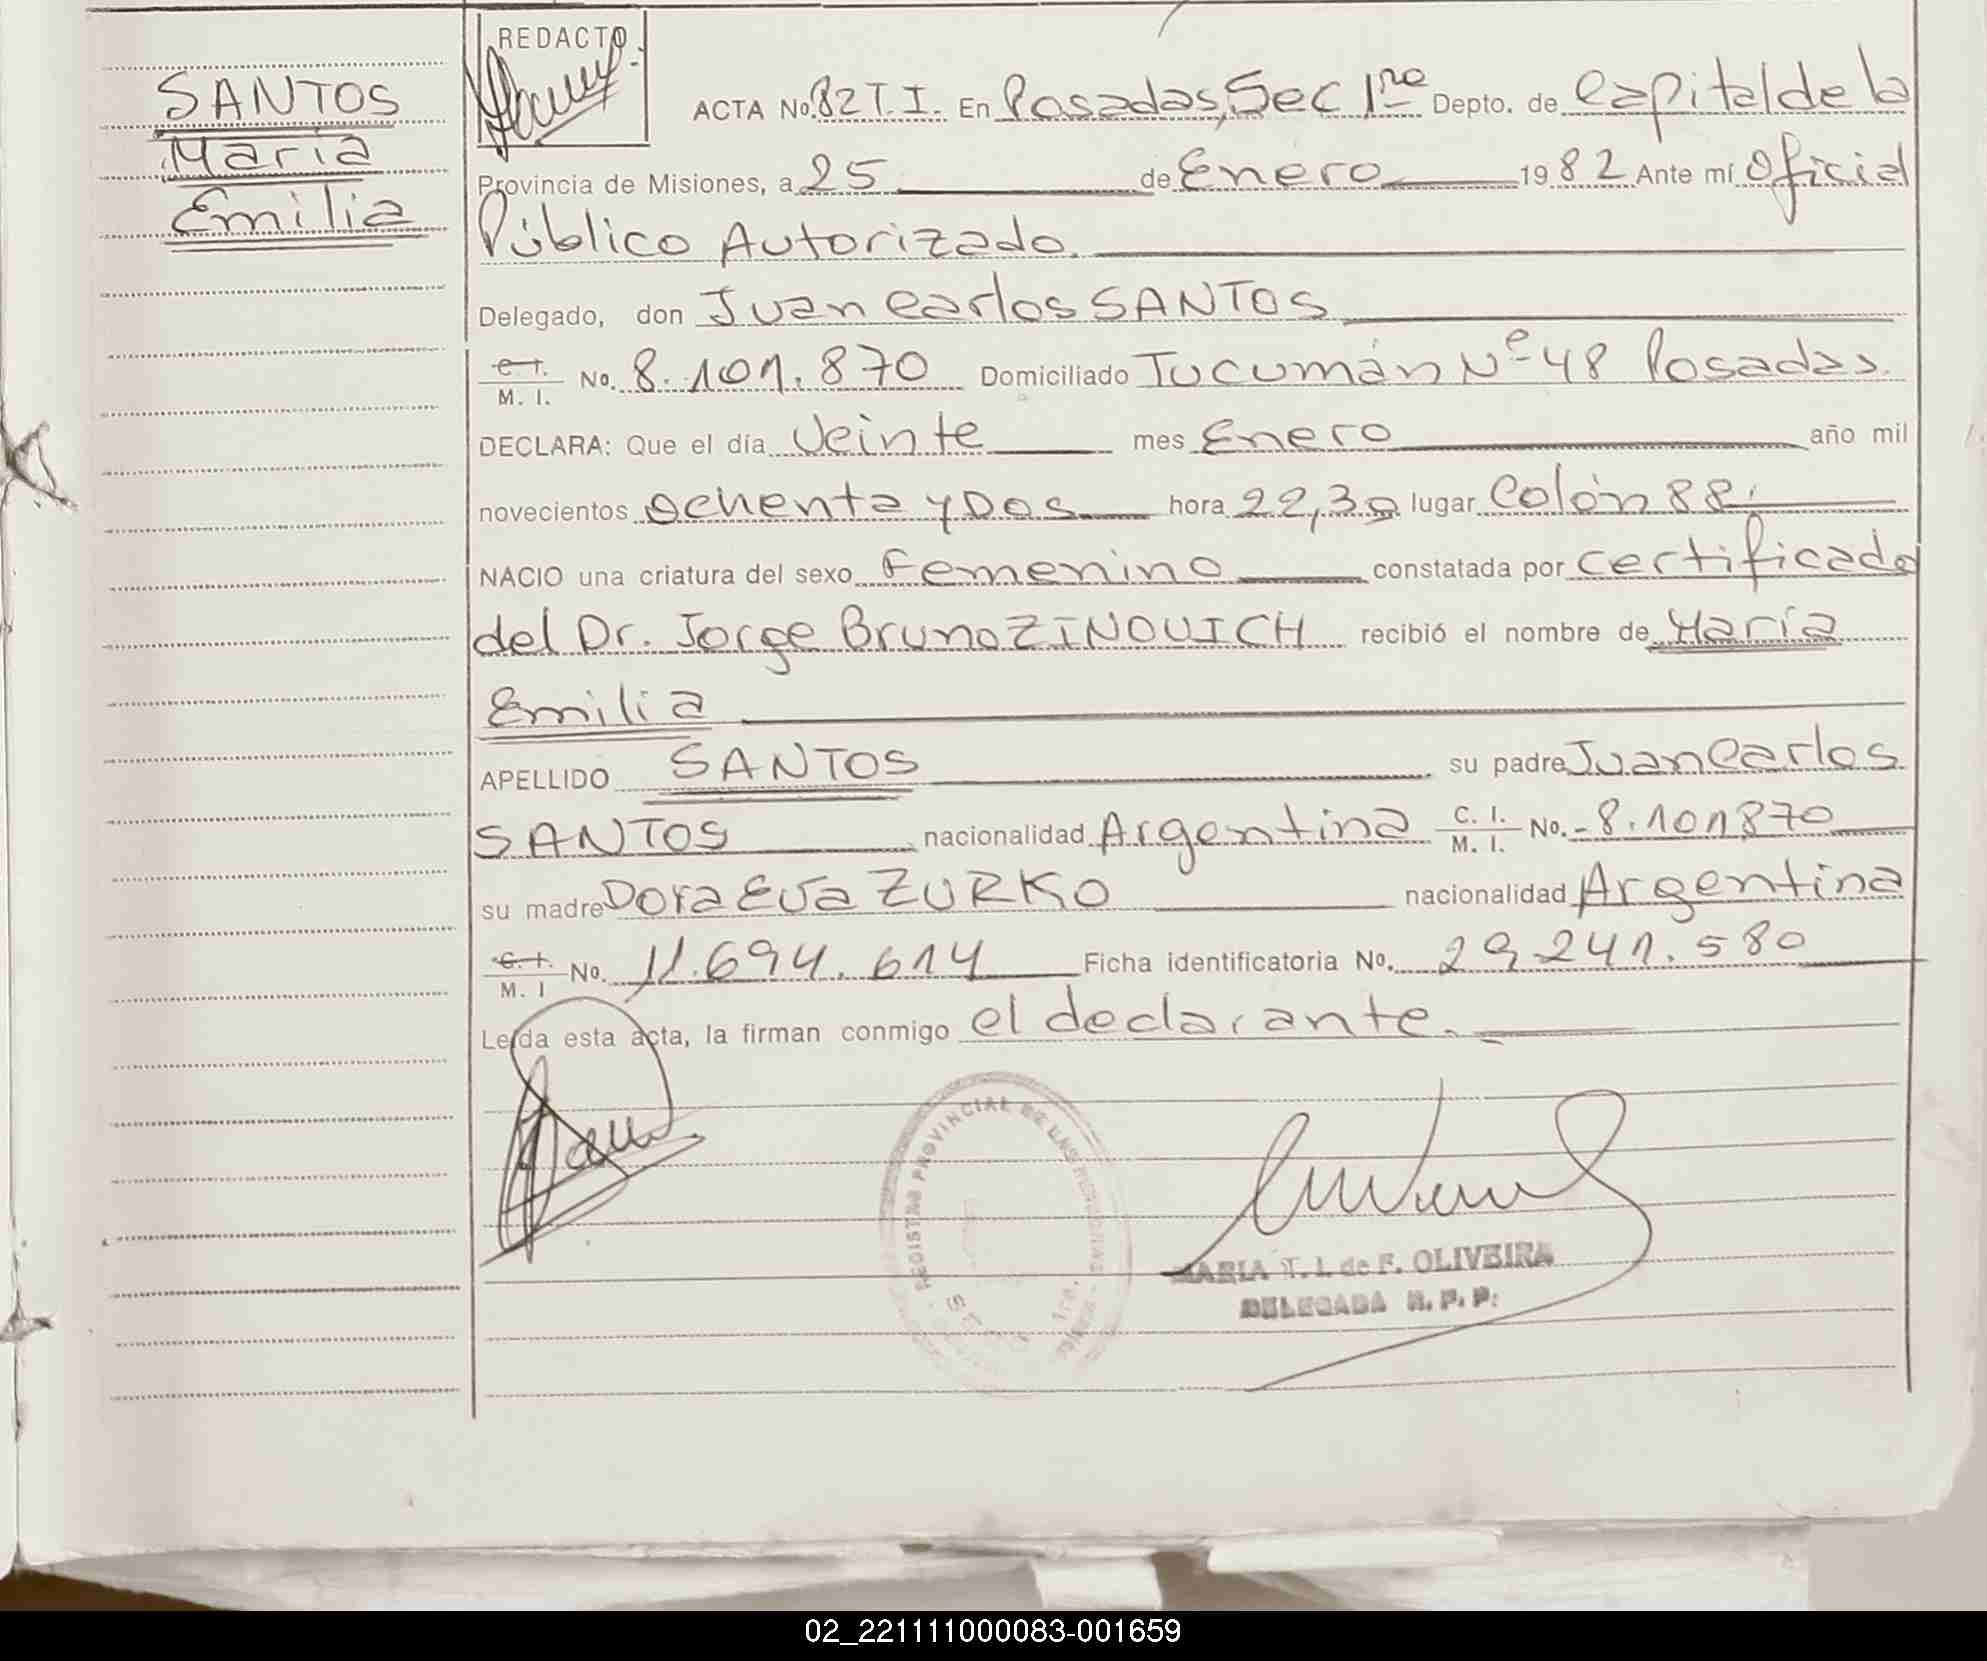 SANTOS
María
Emilia
REDACTO
ACTA No. 82 T. I. En Posadas, Sec 1ra Depto. de Capital de la
Provincia de Misiones, a 25 de Enero 1982 Ante mí Oficial
Público Autorizado.
Delegado, don Juan Carlos SANTOS
C. I. / M. I. No. 8.101.870 Domiciliado Tucumán Nº 48 Posadas.
DECLARA: Que el día Veinte mes Enero año mil
novecientos Ochenta y Dos hora 22,30 lugar Colón 88,
NACIO una criatura del sexo Femenino constatada por Certificado
del Dr. Jorge Bruno ZINOVICH recibió el nombre de María
Emilia
APELLIDO SANTOS su padre Juan Carlos
SANTOS nacionalidad Argentina C. I. / M. I. No. - 8.101870
su madre Dora Eva ZURKO nacionalidad Argentina
C. I. / M. I No. 11.694.614 Ficha identificatoria No. 29.241.580
Leída esta acta, la firman conmigo el declarante.
REGISTRO PROVINCIAL DE LAS PERSONAS
1ra.
MARIA T. I. de F. OLIVEIRA
DELEGADA R. P. P.
02_221111000083-001659